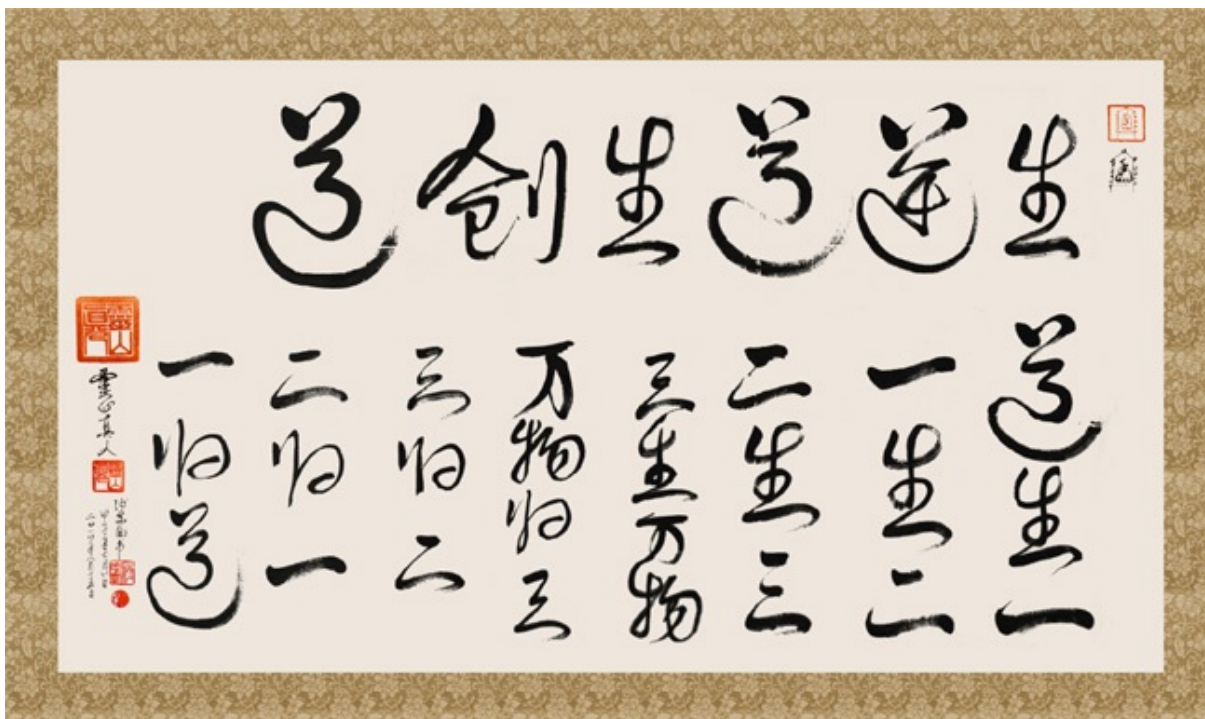 生逆道生创道
道生一
一生二
二生三
三生万物
万物归三
三归二
二归一
一归道
靈山真人